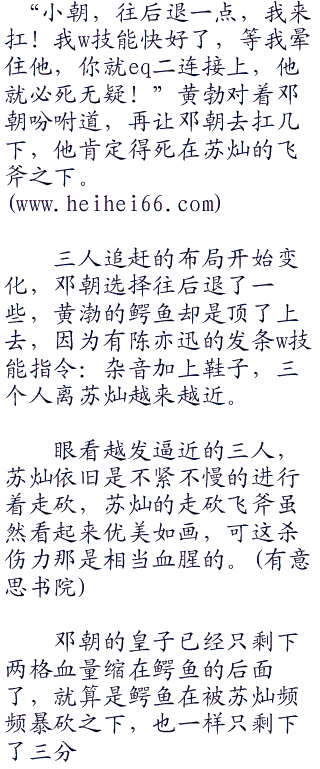 “小朝，往后退一点，我来
扛！我w技能快好了，等我晕
住他，你就eq二连接上，他
就必死无疑！”黄勃对着邓
朝吩咐道，再让邓朝去扛几
下，他肯定得死在苏灿的飞
斧之下。
(www.heihei66.com)
三人追赶的布局开始变
化，邓朝选择往后退了一
些，黄渤的鳄鱼却是顶了上
去，因为有陈亦迅的发条w技
能指令：杂音加上鞋子，三
个人离苏灿越来越近。
眼看越发逼近的三人，
苏灿依旧是不紧不慢的进行
着走砍，苏灿的走砍飞斧虽
然看起来优美如画，可这杀
伤力那是相当血腥的。(有意
思书院)
邓朝的皇子已经只剩下
两格血量缩在鳄鱼的后面
了，就算是鳄鱼在被苏灿频
频暴砍之下，也一样只剩下
了三分